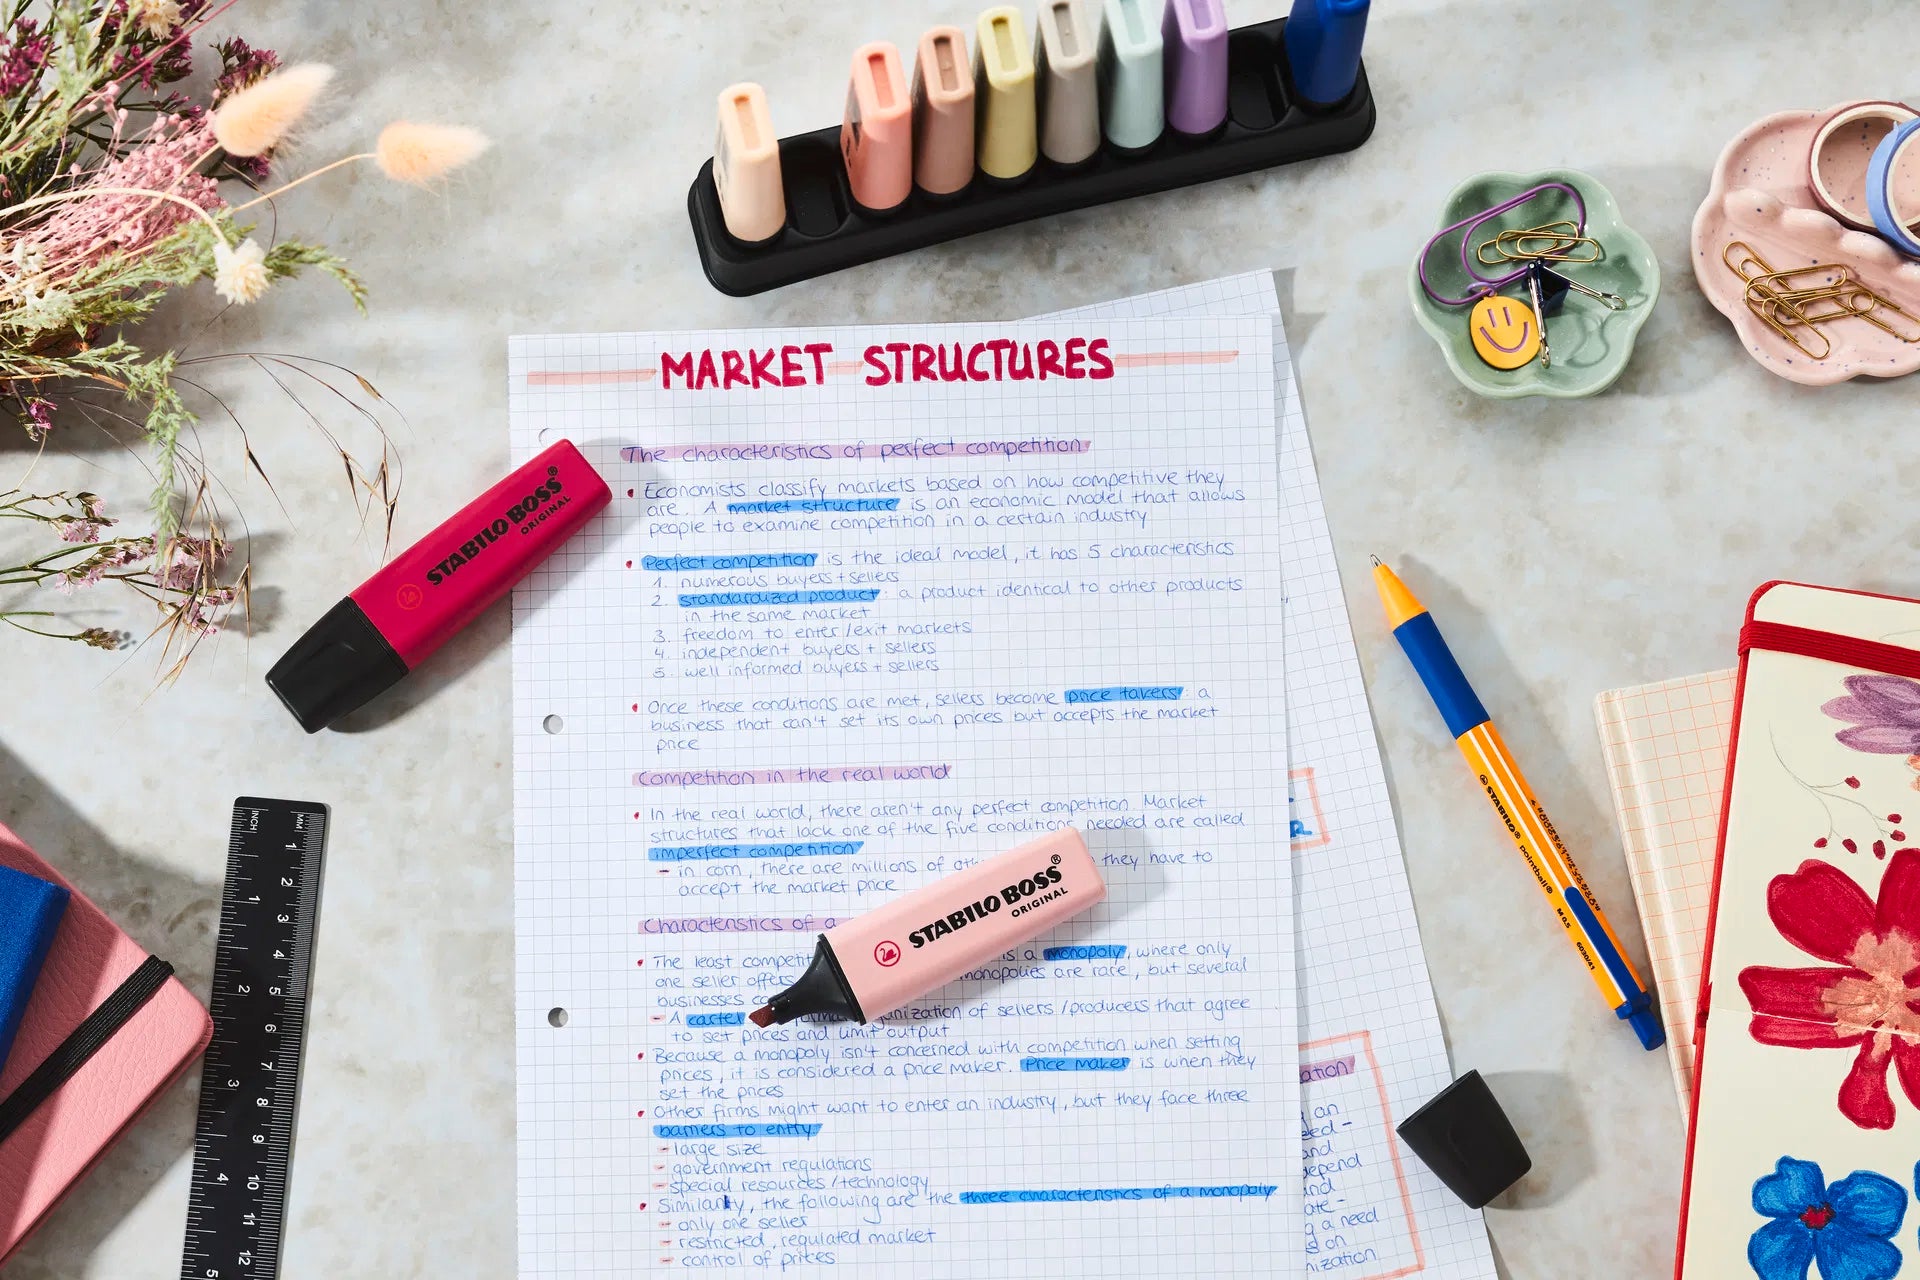 MARKET STRUCTURES
The characteristics of perfect competition
• Economists classify markets based on how competitive they
are. A market structure is an economic model that allows
people to examine competition in a certain industry
• Perfect competition is the ideal model, it has 5 characteristics
1. numerous buyers + sellers
2. standardized product: a product identical to other products
in the same market
3. freedom to enter/exit markets
4. independent buyers + sellers
5. well informed buyers + sellers
• Once these conditions are met, sellers become price takers: a
business that can't set its own prices but accepts the market
price
Competition in the real world
• In the real world, there aren't any perfect competition. Market
structures that lack one of the five conditions needed are called
imperfect competition
- in corn, there are millions of they have to
accept the market price
Characteristics of a
• The least is a monopoly, where only
one seller offers monopolies are rare, but several
businesses
- A cartel of sellers/producers that agree
to set prices and limit output
• Because a monopoly isn't concerned with competition when setting
prices, it is considered a price maker. Price maker is when they
set the prices
• Other firms might want to enter an industry, but they face three
barriers to entry.
- large size
- government regulations
- special resources/technology
• Similarly, the following are the three characteristics of a monopoly
- only one seller
- restricted, regulated market
- control of prices
STABILO BOSS®
ORIGINAL
STABILO BOSS®
ORIGINAL
STABILO® pointball®
M 0.5
6030/41
INCH
MM
1
2
3
4
5
6
7
8
9
10
11
12
1
2
3
4
5
R
ation
an
and
depend
and
ate-
g a need
on
nization